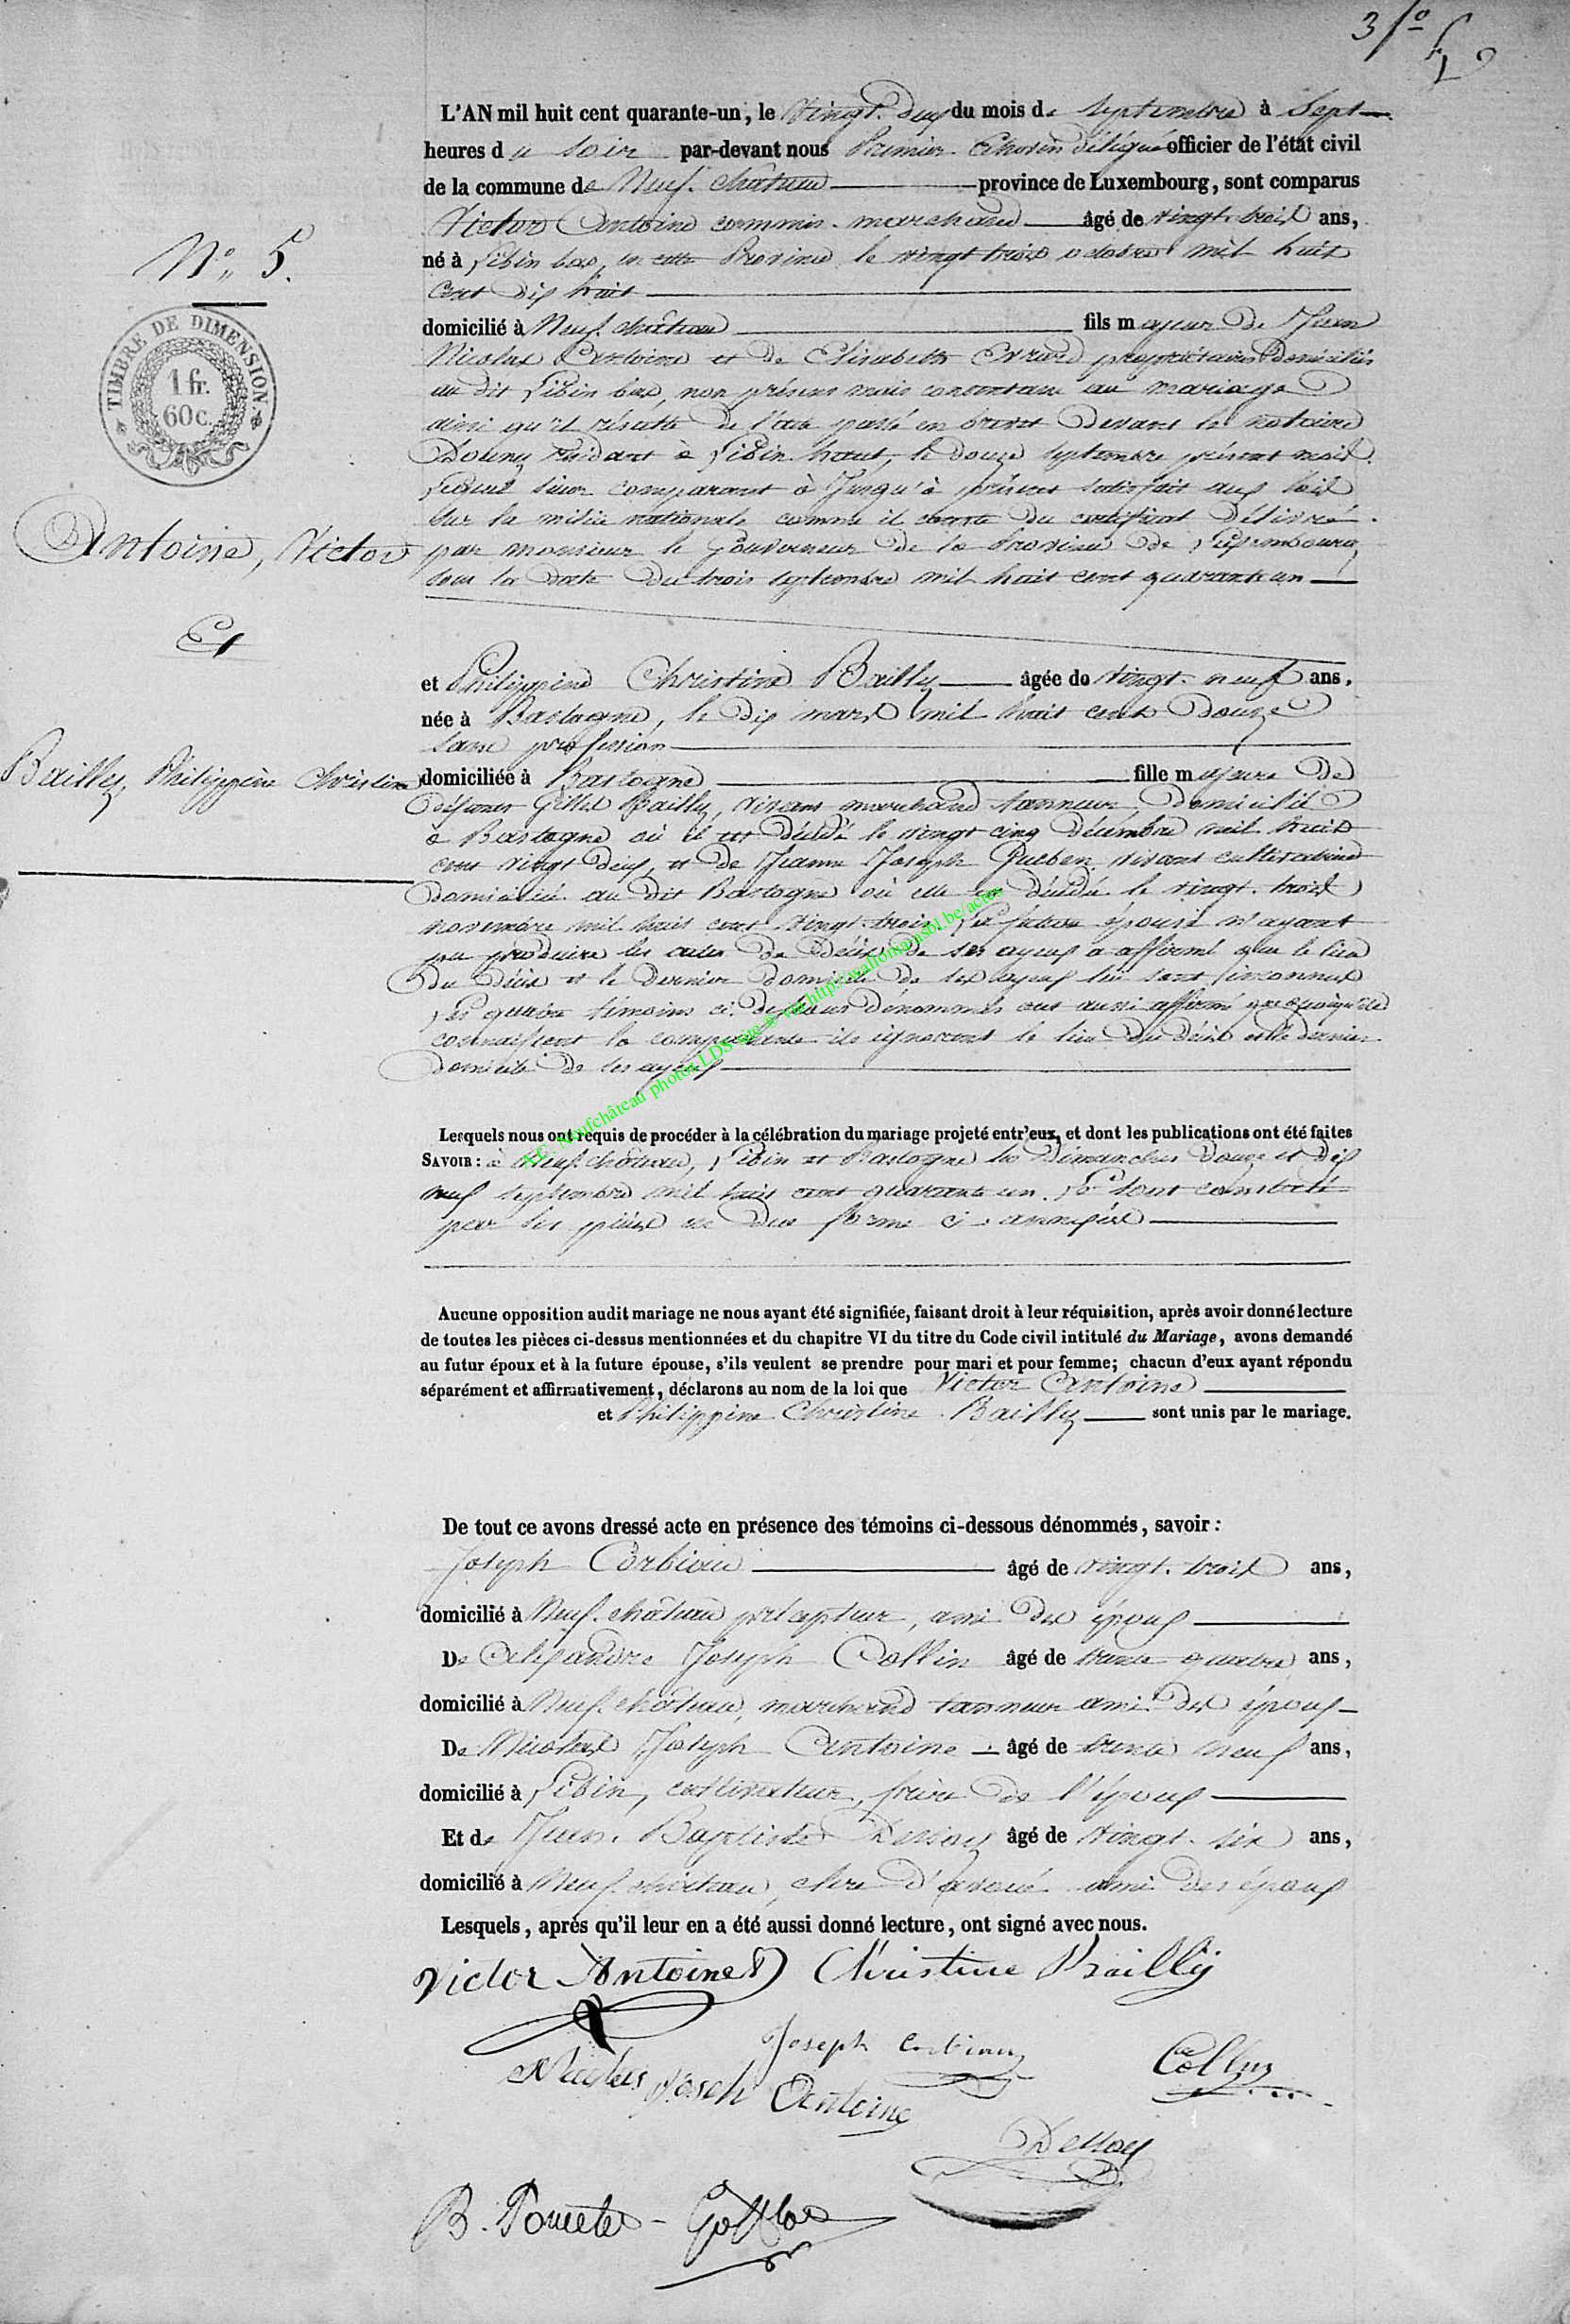 L'AN mil huit cent quarante-un, le vingt-deux du mois de septembre à Sept
heures du soir par-devant nous Premier Echevin délégué officier de l'état civil
de la commune de Neuf-château province de Luxembourg, sont comparus
Victor Antoine commis-marchand âgé de vingt-trois ans,
né à Libin bas, en cette Province le vingt trois octobre mil huit
cent dix huit
domicilié à Neuf-château fils majeur de Jean
Nicolas Antoine et de Elisabeth propriétaires domiciliés
au dit Libin bas, non présens mais consentans au mariage
ainsi qu'il résulte de l'acte passé en brevet devant le notaire
résidant à Libin-haut, le douze septembre présent mois.
Lequel sieur comparant a jusqu'à présent satisfait aux lois
sur la milice nationale comme il conste du certificat délivré
par monsieur le Gouverneur de la Province de Luxembourg,
sous la date du trois septembre mil huit cent quarante un
N° 5.
TIMBRE DE DIMENSION.
1 fr.
60 c.
Antoine, Victor
Et
Bailly, Philippine Christine
et Philippine Christine Bailly âgée de vingt-neuf ans.
née à Bastogne, le dix mars mil huit cent douze
sans profession
domiciliée à Bastogne fille majeure de
défunts Gilles Bailly, vivant marchand tanneur, domicilié
à Bastogne où il est décédé le vingt cinq décembre mil huit
cent vingt deux, et de Jeanne Joseph Gueben vivant cultivatrice
domiciliée au dit Bastogne où elle est décédée le vingt-trois
novembre mil huit cent vingt-trois. La future épouse n'ayant
pu produire les actes de décès de ses ayeux a affirmé que le lieu
du décès et le dernier domicile de ses ayeux lui sont inconnus
Les quatre témoins ci-dessous dénommés ont aussi affirmé que quoiqu'ils
connaissent la comparante ils ignorent le lieu du décès et le dernier
domicile de ses ayeux
Neufchâteau photos LDS
Lesquels nous ont requis de procéder à la célébration du mariage projeté entr'eux, et dont les publications ont été faites
SAVOIR: à Neuf-château, Libin et Bastogne les dimanches douze et dix
neuf septembre mil huit cent quarante un.
par les pièces en due forme ci-annexées
Aucune opposition audit mariage ne nous ayant été signifiée, faisant droit à leur réquisition, après avoir donné lecture
de toutes les pièces ci-dessus mentionnées et du chapitre VI du titre du Code civil intitulé du Mariage, avons demandé
au futur époux et à la future épouse, s'ils veulent se prendre pour mari et pour femme; chacun d'eux ayant répondu
séparément et affirmativement, déclarons au nom de la loi que Victor Antoine
et Philippine Christine Bailly sont unis par le mariage.
De tout ce avons dressé acte en présence des témoins ci-dessous dénommés, savoir:
Joseph Corbiau âgé de vingt-trois ans,
domicilié à Neuf-château précepteur, ami des époux
De Alexandre Joseph Collin âgé de trente quatre ans,
domicilié à Neuf-château, marchand tanneur ami des époux
De Nicolas Joseph Antoine âgé de trente neuf ans,
domicilié à Libin, cultivateur, frère de l'époux
Et de Jean-Baptiste Dessoy âgé de vingt-six ans,
domicilié à Neuf-château, clerc d'avoué ami des époux
Lesquels, après qu'il leur en a été aussi donné lecture, ont signé avec nous.
Victor Antoine Christine Bailly
Joseph Corbiau
Collin
Nicolas Joseph Antoine
Dessoy
B. Poncelet